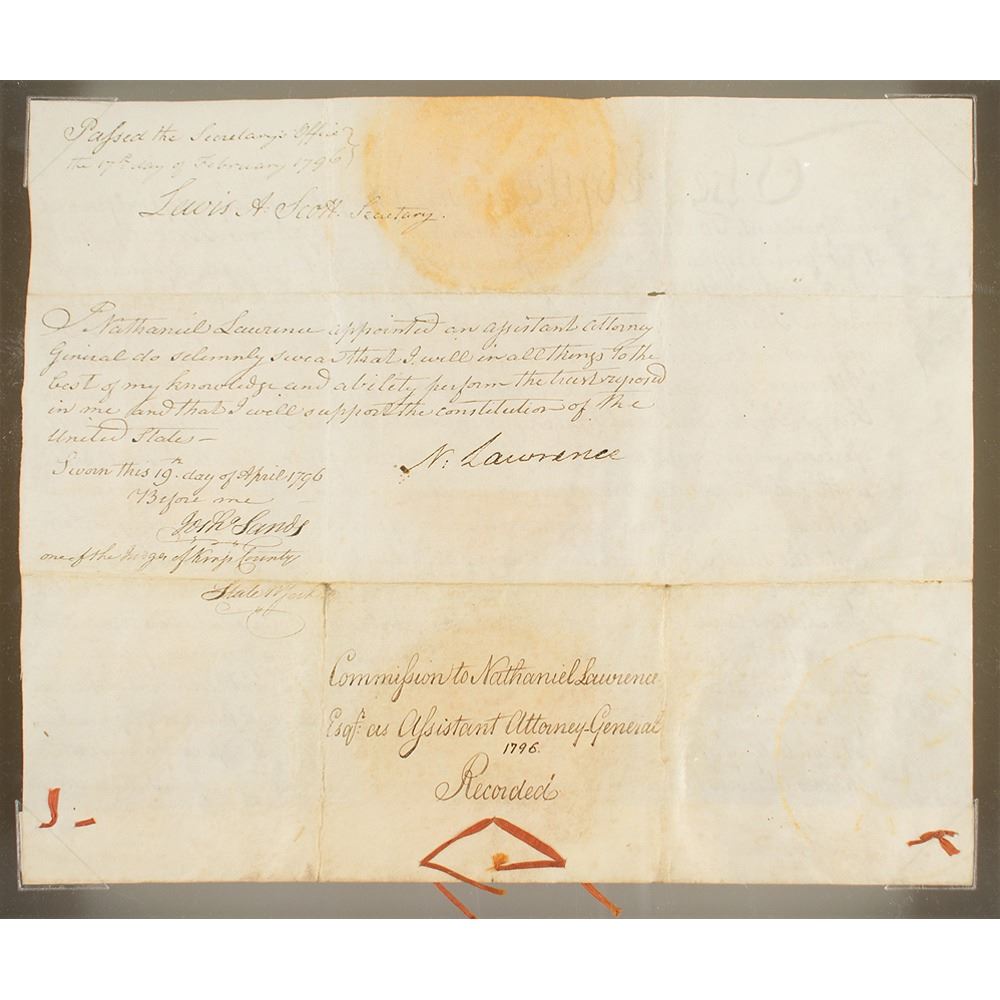 Passed the Secretary's Office
the 17th day of February 1796
Lewis A. Scott. Secretary.
I Nathaniel Lawrence appointed an assistant attorney
General do solemnly swear that I will in all things to the
best of my knowledge and ability perform the trust reposed
in me and that I will support the constitution of the
United States—
N: Lawrence
Sworn this 19th day of April 1796
Before me
Josha Sands
one of the Judges of Kings County
State N York
Commission to Nathaniel Lawrence
Esqr. as Assistant Attorney-General
1796.
Recorded